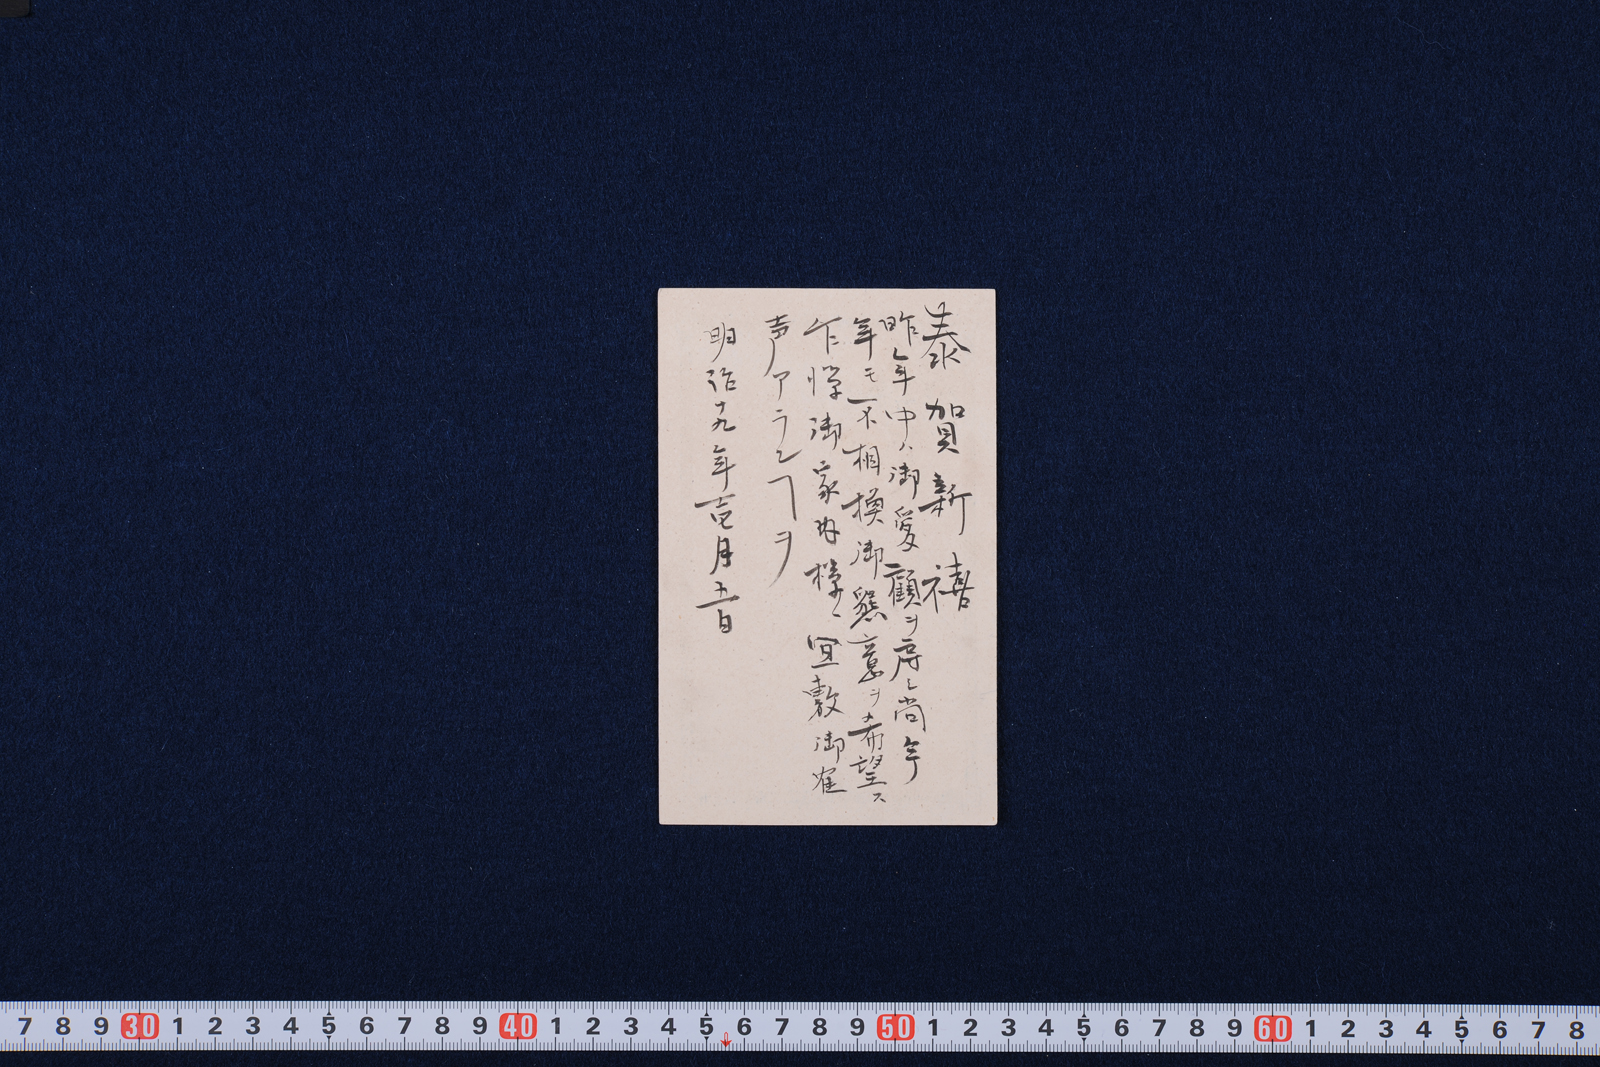 恭賀新禧
昨年中ハ御愛顧ヲ辱シ尚今
年モ不相換御懇意ヲ希望ス
乍憚御家内様ニ宜敷御寉
声アランヿヲ
明治十九年壱月十一日
7 8 9 30 1 2 3 4 5 6 7 8 9 40 1 2 3 4 5 6 7 8 9 50 1 2 3 4 5 6 7 8 9 60 1 2 3 4 5 6 7 8